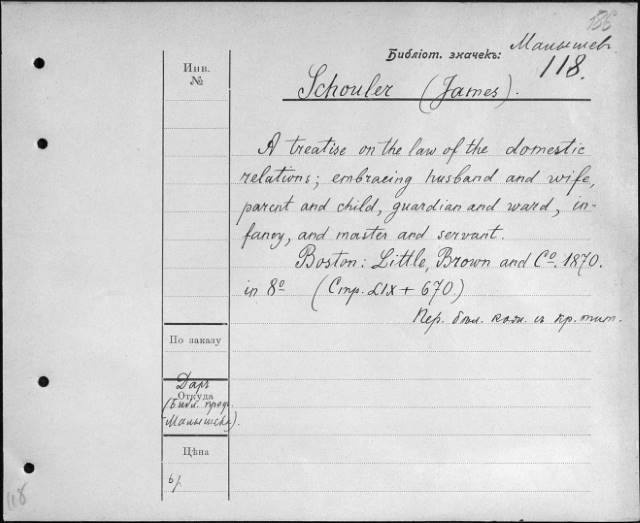 186
Малышев.
Библіот. значекъ:
118.
Инв.
№
Schouler (James).
A treatise on the law of the domestic
relations; embracing husband and wife,
parent and child, guardian and ward, in-
fancy, and master and servant.
Boston: Little, Brown and Cº. 1870.
in 8º (Стр. LIX + 670)
Пер. бѣл. кожи. съ кр. тит.
По заказу
Даръ
Откуда
(Библ. проф.
Малышева).
Цѣна
6р.
118